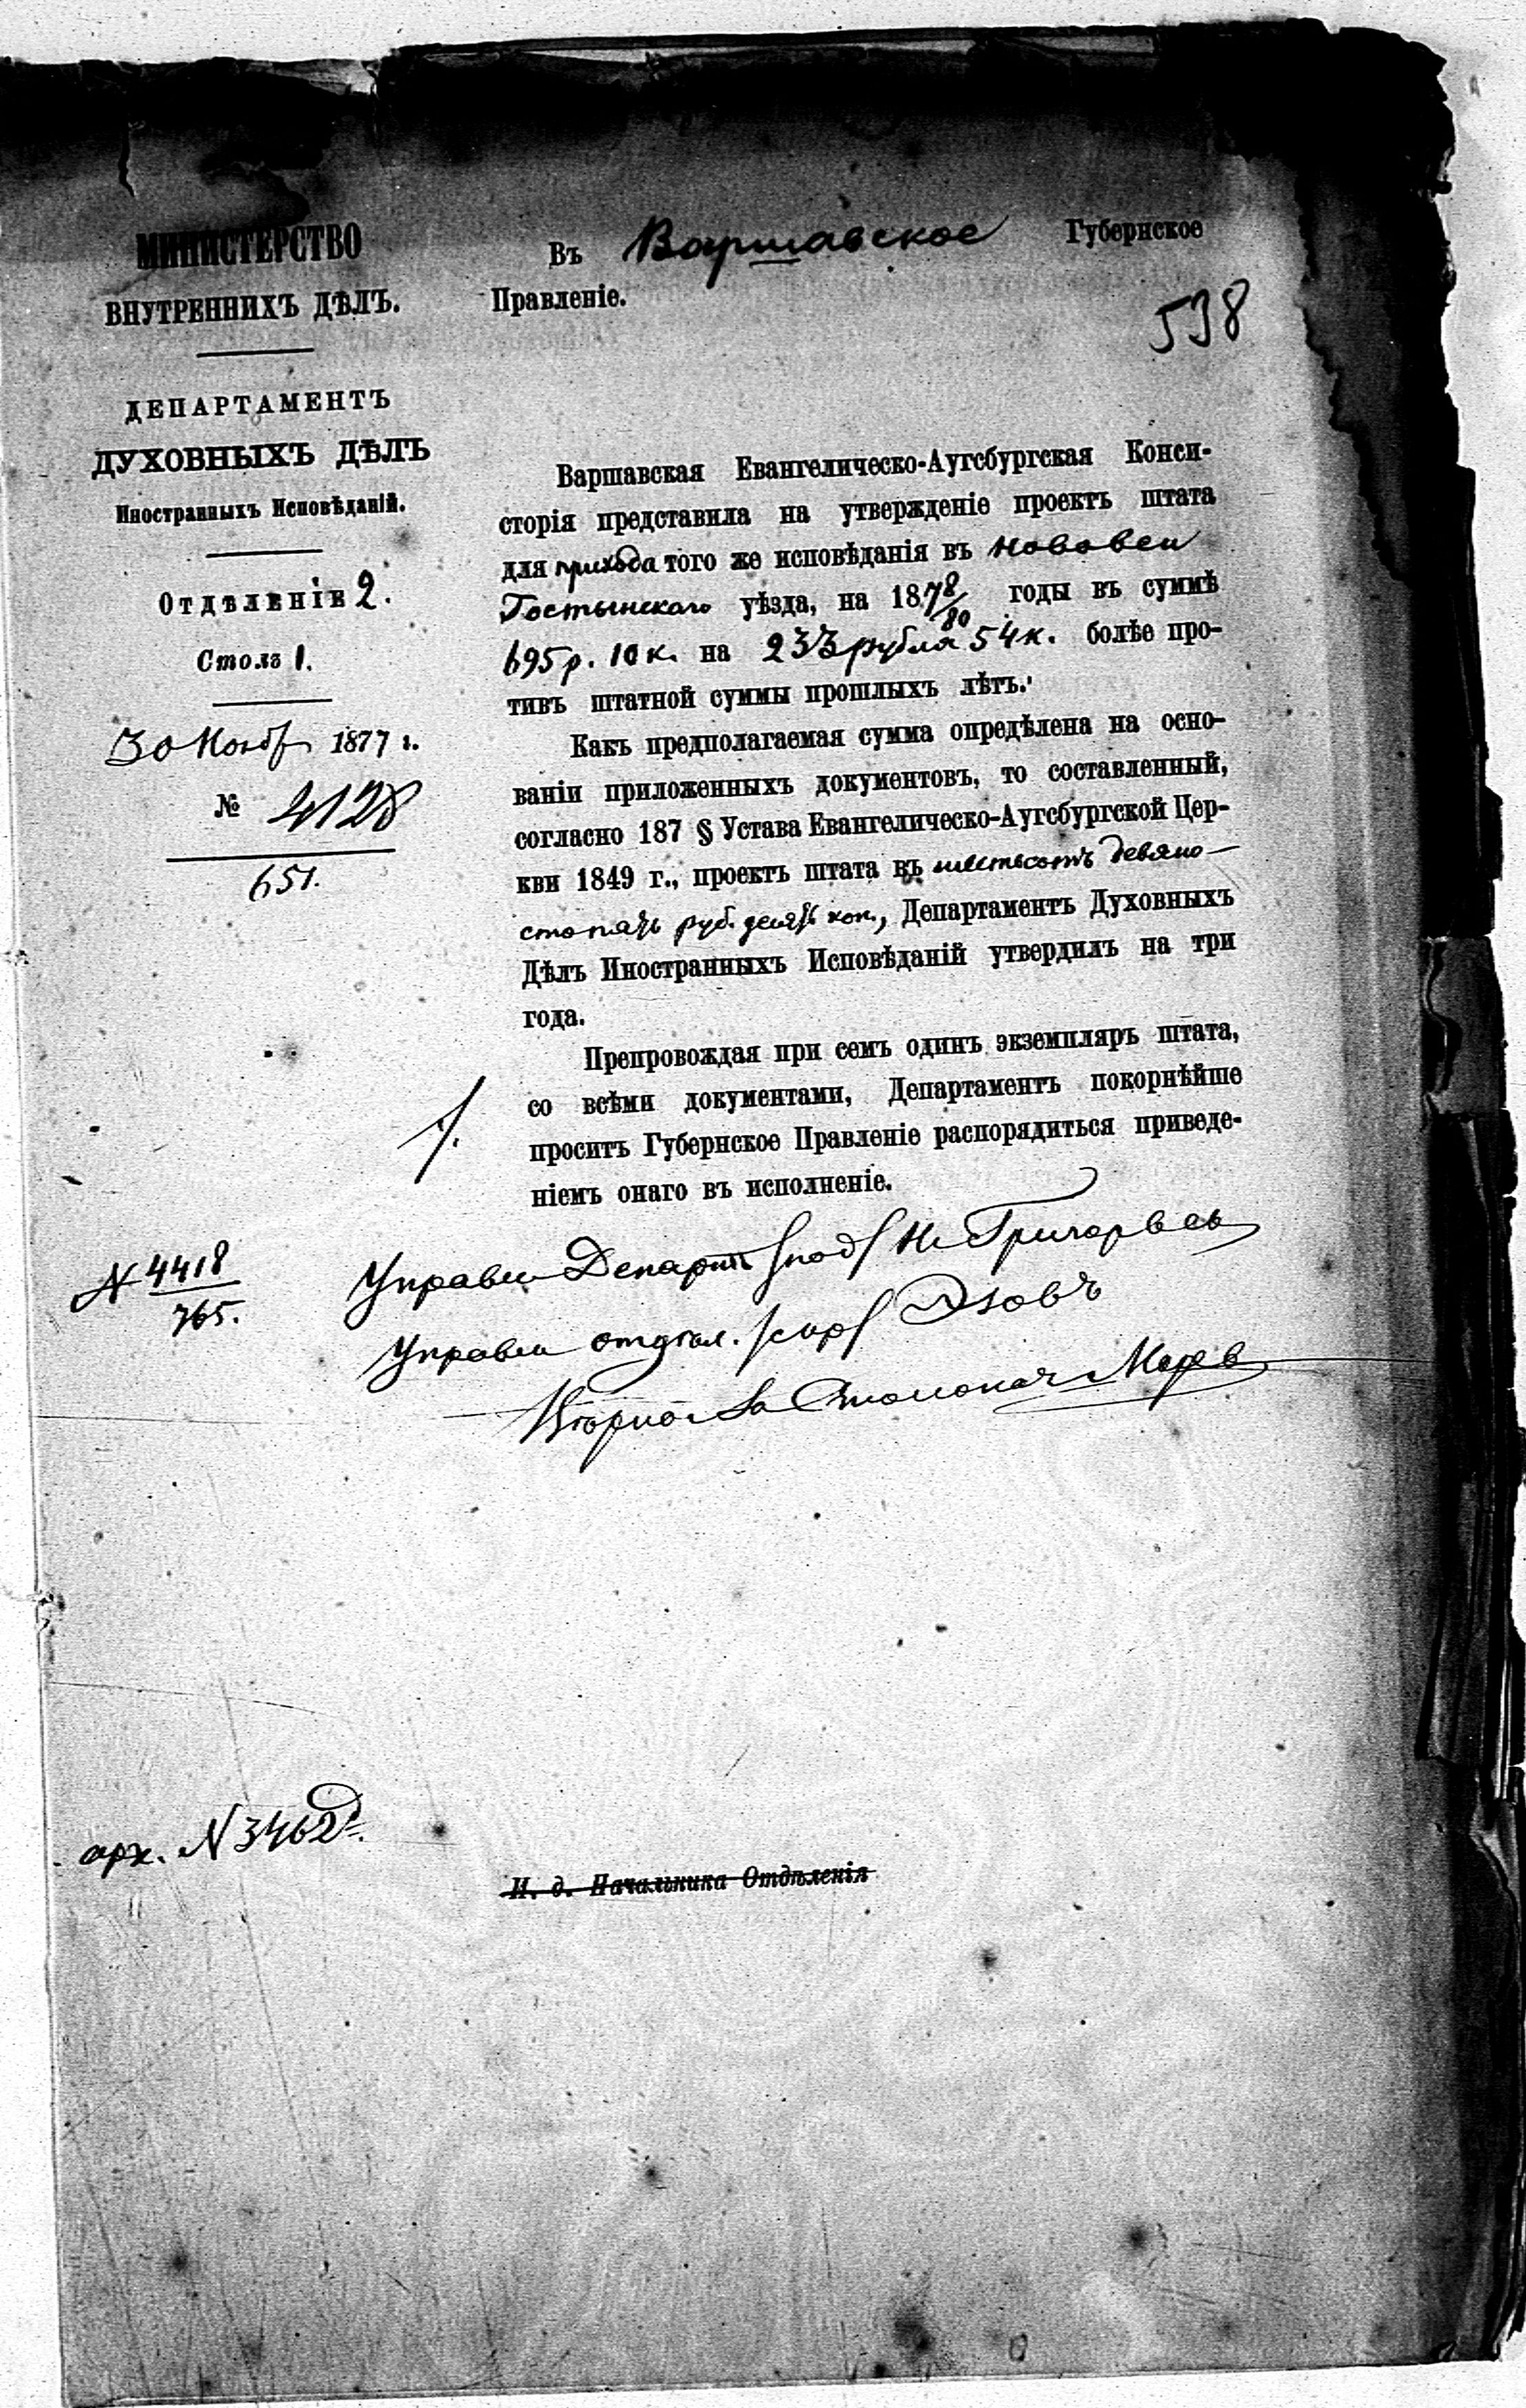 МИНИСТЕРСТВО
ВНУТРЕННИХЪ ДѢЛЪ.
ДЕПАРТАМЕНТЪ
ДУХОВНЫХЪ ДѢЛЪ
Иностранныхъ Исповѣданій.
Отдѣленіе 2.
Столъ 1.
30 Нояб 1877 г.
№ 4128
651.
Въ Варшавское Губернское
Правленіе.
538
Варшавская Евангелическо-Аугсбургская Конси-
сторія представила на утвержденіе проектъ штата
для прихода того же исповѣданія въ Нововси
Гостынскаго уѣзда, на 1878/80 годы въ суммѣ
695 р. 10 к. на 233 рубля 54 к. болѣе про-
тивъ штатной суммы прошлыхъ лѣтъ.
Какъ предполагаемая сумма опредѣлена на осно-
ваніи приложенныхъ документовъ, то составленный,
согласно 187 § Устава Евангелическо-Аугсбургской Цер-
кви 1849 г., проектъ штата въ шестьсотъ девяно-
сто пять руб. десять коп., Департаментъ Духовныхъ
Дѣлъ Иностранныхъ Исповѣданій утвердилъ на три
года.
Препровождая при семъ одинъ экземпляръ штата,
со всѣми документами, Департаментъ покорнѣйше
проситъ Губернское Правленіе распорядиться приведе-
ніемъ онаго въ исполненіе.
№ 4418
765.
Управл Департ /под/ Н Григорьев
Управл отдѣл. /скр/ Эзовъ
Вѣрно За Столонач
арх. N 3462
И. д. Начальника Отдѣленія